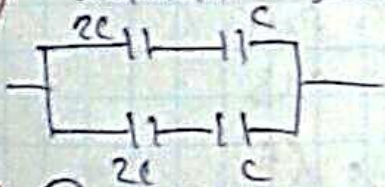 2C C
2C C